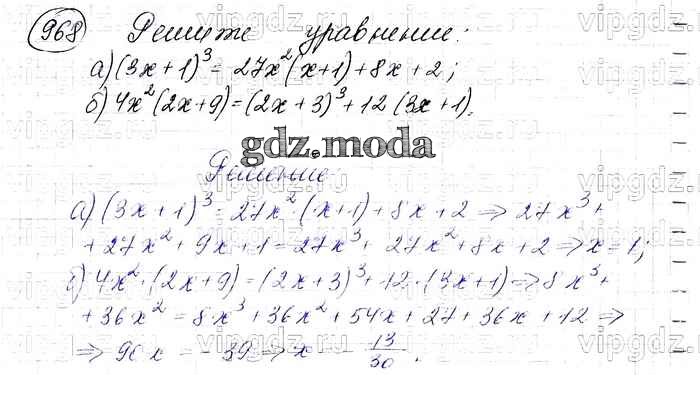 968 Решите уравнение:
а) (3x+1)³ = 27x²(x+1)+8x+2;
б) 4x²(2x+9)=(2x+3)³+12(3x+1).
gdz.moda
Решение
а) (3x+1)³ = 27x²·(x+1)+8x+2 ⇒ 27x³+
+27x²+9x+1=27x³+27x²+8x+2 ⇒ x=1;
б) 4x²·(2x+9)=(2x+3)³+12·(3x+1) ⇒ 8x³+
+36x²=8x³+36x²+54x+27+36x+12 ⇒
⇒ 90x = -39 ⇒ x = - 13/30.